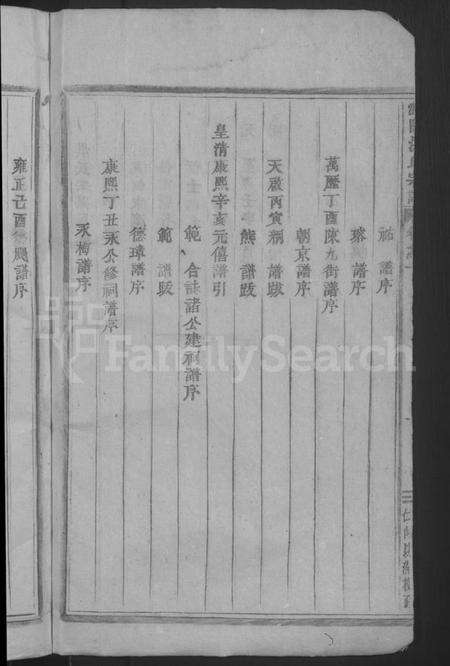 祐譜序
琮譜序
萬曆丁酉陳九街譜序
朝京譜序
天啟丙寅㭎譜跋
熊譜跋
皇清康熙辛亥元僖譜引
範合註諸公建祠譜序
範譜跋
德璋譜序
康熙丁丑汞公修祠譜序
汞梅譜序
雍正己酉颺譜序
FamilySearch